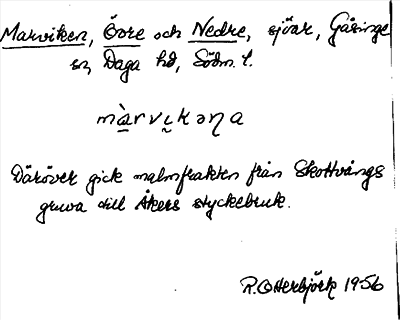 Marviken, Övre och Nedre, sjöar, Gåsinge
sn, Daga hd, Södm. l.
màrvıkəna
Däröver gick malmfrakten från Skottvångs
gruva till Åkers styckebruk.
R. Otterbjörk 1956